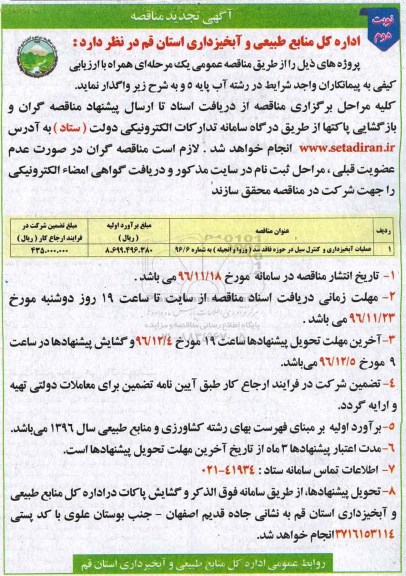 آگهی تجدید مناقصه
نوبت دوم
اداره کل منابع طبیعی و آبخیزداری استان قم در نظر دارد :
پروژه های ذیل را از طریق مناقصه عمومی یک مرحله‌ای همراه با ارزیابی
کیفی به پیمانکاران واجد شرایط در رشته آب پایه ۵ و به شرح زیر واگذار نماید.
کلیه مراحل برگزاری مناقصه از دریافت اسناد تا ارسال پیشنهاد مناقصه گران و
بازگشایی پاکتها از طریق درگاه سامانه تدارکات الکترونیکی دولت ( ستاد ) به آدرس
www.setadiran.ir انجام خواهد شد . لازم است مناقصه گران در صورت عدم
عضویت قبلی ، مراحل ثبت نام در سایت مذکور و دریافت گواهی امضاء الکترونیکی
را جهت شرکت در مناقصه محقق سازند
ردیف عنوان مناقصه مبلغ برآورد اولیه ( ریال ) مبلغ تضمین شرکت در فرایند ارجاع کار ( ریال )
۱ عملیات آبخیزداری و کنترل سیل در حوزه فاقد سد ( وزوا و انجیله ) به شماره ۹۶/۶ ۸.۶۹۹.۴۹۶.۳۸۰ ۴۳۵.۰۰۰.۰۰۰
۱- تاریخ انتشار مناقصه در سامانه مورخ ۹۶/۱۱/۱۸ می باشد .
۲- مهلت زمانی دریافت اسناد مناقصه از سایت تا ساعت ۱۹ روز دوشنبه مورخ
۹۶/۱۱/۲۳ می باشد .
۳- آخرین مهلت تحویل پیشنهادها ساعت ۱۹ مورخ ۹۶/۱۲/۴ و گشایش پیشنهادها در ساعت
۹ مورخ ۹۶/۱۲/۵ می‌باشد.
۴- تضمین شرکت در فرایند ارجاع کار طبق آیین نامه تضمین برای معاملات دولتی تهیه
و ارایه گردد.
۵- برآورد اولیه بر مبنای فهرست بهای رشته کشاورزی و منابع طبیعی سال ۱۳۹۶ می‌باشد.
۶- مدت اعتبار پیشنهادها ۳ ماه از تاریخ آخرین مهلت تحویل پیشنهادها است.
۷- اطلاعات تماس سامانه ستاد : ۴۱۹۳۴-۰۲۱
۸- تحویل پیشنهادها، از طریق سامانه فوق الذکر و گشایش پاکات در اداره کل منابع طبیعی
و آبخیزداری استان قم به نشانی جاده قدیم اصفهان - جنب بوستان علوی با کد پستی
۳۷۱۶۱۵۳۱۱۴ انجام خواهد شد.
روابط عمومی اداره کل منابع طبیعی و آبخیزداری استان قم